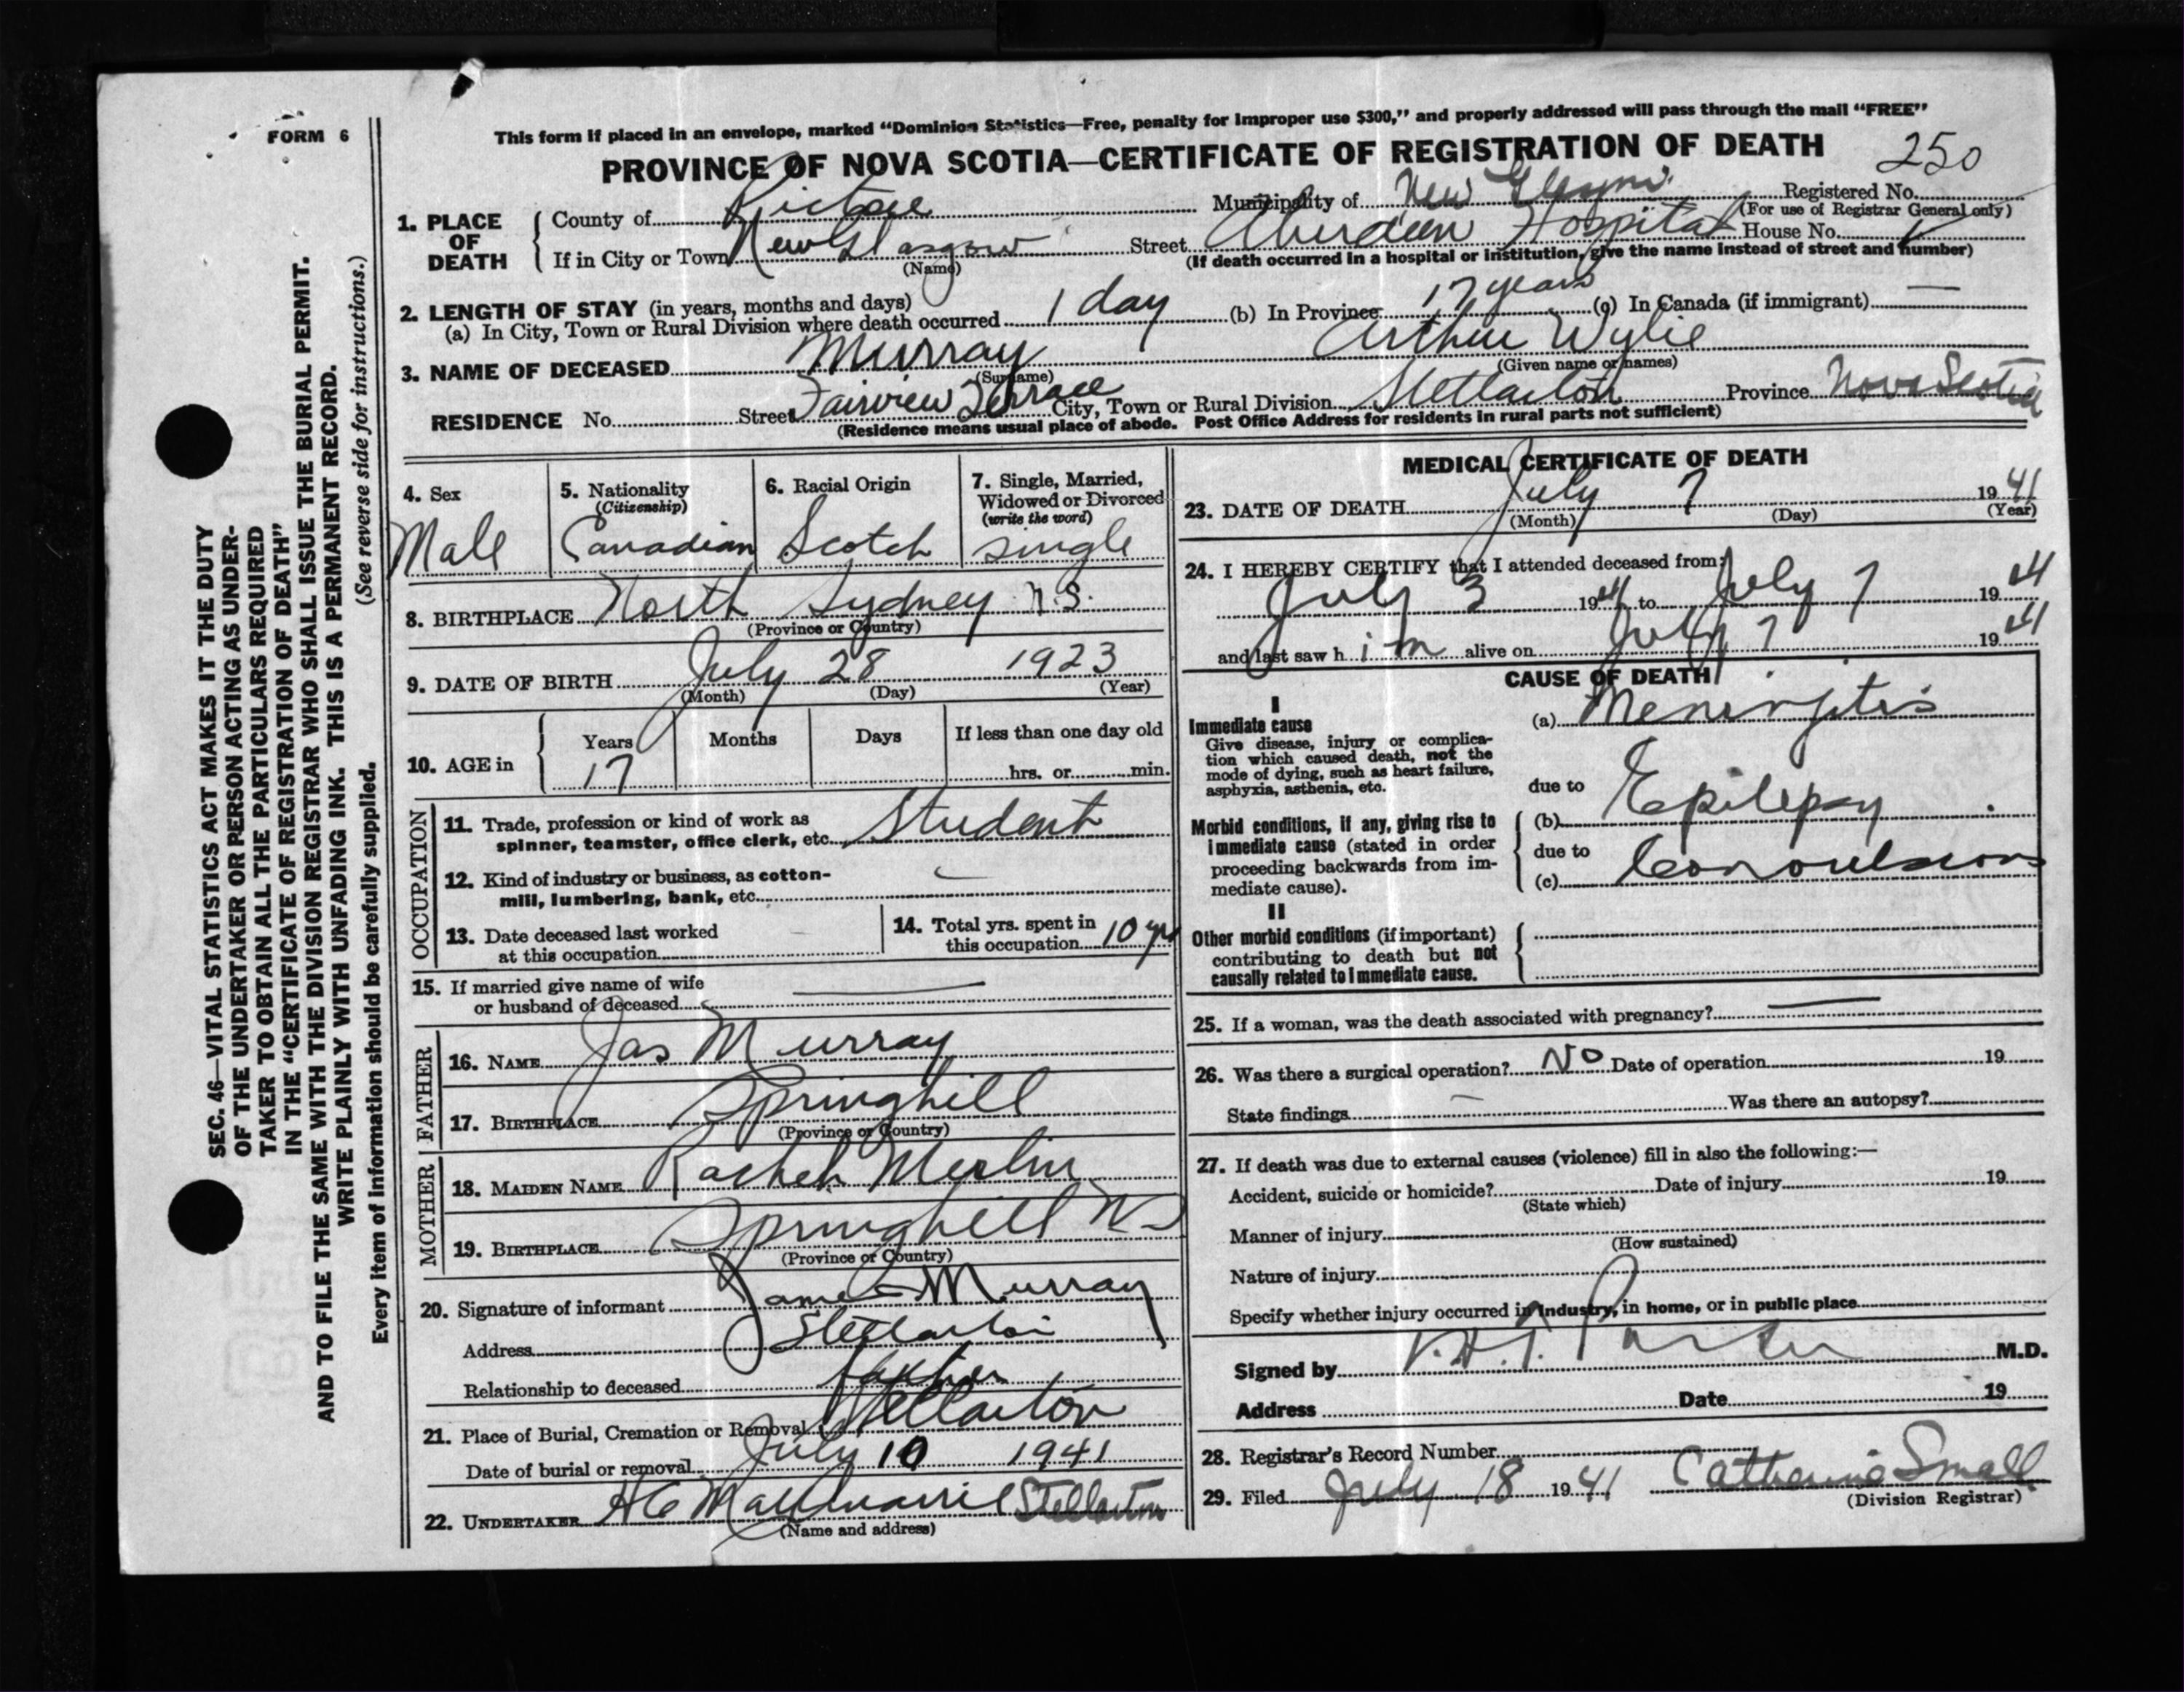 FORM 6
This form if placed in an envelope, marked “Dominion Statistics—Free, penalty for improper use $300,” and properly addressed will pass through the mail “FREE”
PROVINCE OF NOVA SCOTIA—CERTIFICATE OF REGISTRATION OF DEATH
250
1. PLACE OF DEATH
County of Pictou Municipality of New Glasgow Registered No.
(For use of Registrar General only)
If in City or Town New Glasgow Street Aberdeen Hospital House No.
(Name) (If death occurred in a hospital or institution, give the name instead of street and number)
2. LENGTH OF STAY (in years, months and days)
(a) In City, Town or Rural Division where death occurred 1 day (b) In Province 17 years (c) In Canada (if immigrant) —
3. NAME OF DECEASED Murray Arthur Wylie
(Surname) (Given name or names)
RESIDENCE No. Street Fairview Terrace City, Town or Rural Division Stellarton Province Nova Scotia
(Residence means usual place of abode. Post Office Address for residents in rural parts not sufficient)
4. Sex Male
5. Nationality (Citizenship) Canadian
6. Racial Origin Scotch
7. Single, Married, Widowed or Divorced (write the word) single
8. BIRTHPLACE North Sydney N.S.
(Province or Country)
9. DATE OF BIRTH July 28 1923
(Month) (Day) (Year)
10. AGE in Years 17 Months Days If less than one day old
hrs. or min.
OCCUPATION
11. Trade, profession or kind of work as
spinner, teamster, office clerk, etc. Student
12. Kind of industry or business, as cotton-
mill, lumbering, bank, etc. —
13. Date deceased last worked
at this occupation
14. Total yrs. spent in
this occupation 10 yrs
15. If married give name of wife
or husband of deceased —
FATHER
16. NAME Jas Murray
17. BIRTHPLACE Springhill
(Province or Country)
MOTHER
18. MAIDEN NAME Rachel
19. BIRTHPLACE Springhill NS
(Province or Country)
20. Signature of informant James Murray
Address Stellarton
Relationship to deceased father
21. Place of Burial, Cremation or Removal Stellarton
Date of burial or removal July 10 1941
22. UNDERTAKER Stellarton
(Name and address)
MEDICAL CERTIFICATE OF DEATH
23. DATE OF DEATH July 7 1941
(Month) (Day) (Year)
24. I HEREBY CERTIFY that I attended deceased from:
July 3 1941 to July 7 1941
and last saw h im alive on July 7 1941
CAUSE OF DEATH
I
Immediate cause
Give disease, injury or complica-
tion which caused death, not the
mode of dying, such as heart failure,
asphyxia, asthenia, etc.
(a) Meningitis
due to
Morbid conditions, if any, giving rise to
immediate cause (stated in order
proceeding backwards from im-
mediate cause).
(b) Epilepsy
due to
(c) Convulsions
II
Other morbid conditions (if important)
contributing to death but not
causally related to immediate cause.
25. If a woman, was the death associated with pregnancy? —
26. Was there a surgical operation? No Date of operation 19
State findings — Was there an autopsy?
27. If death was due to external causes (violence) fill in also the following:—
Accident, suicide or homicide? Date of injury 19
(State which)
Manner of injury
(How sustained)
Nature of injury
Specify whether injury occurred in industry, in home, or in public place
Signed by M.D.
Address Date 19
28. Registrar's Record Number
29. Filed July 18 1941 Catherine Small
(Division Registrar)
SEC. 46—VITAL STATISTICS ACT MAKES IT THE DUTY
OF THE UNDERTAKER OR PERSON ACTING AS UNDER-
TAKER TO OBTAIN ALL THE PARTICULARS REQUIRED
IN THE “CERTIFICATE OF REGISTRATION OF DEATH”
AND TO FILE THE SAME WITH THE DIVISION REGISTRAR WHO SHALL ISSUE THE BURIAL PERMIT.
WRITE PLAINLY WITH UNFADING INK. THIS IS A PERMANENT RECORD.
(See reverse side for instructions.)
Every item of information should be carefully supplied.